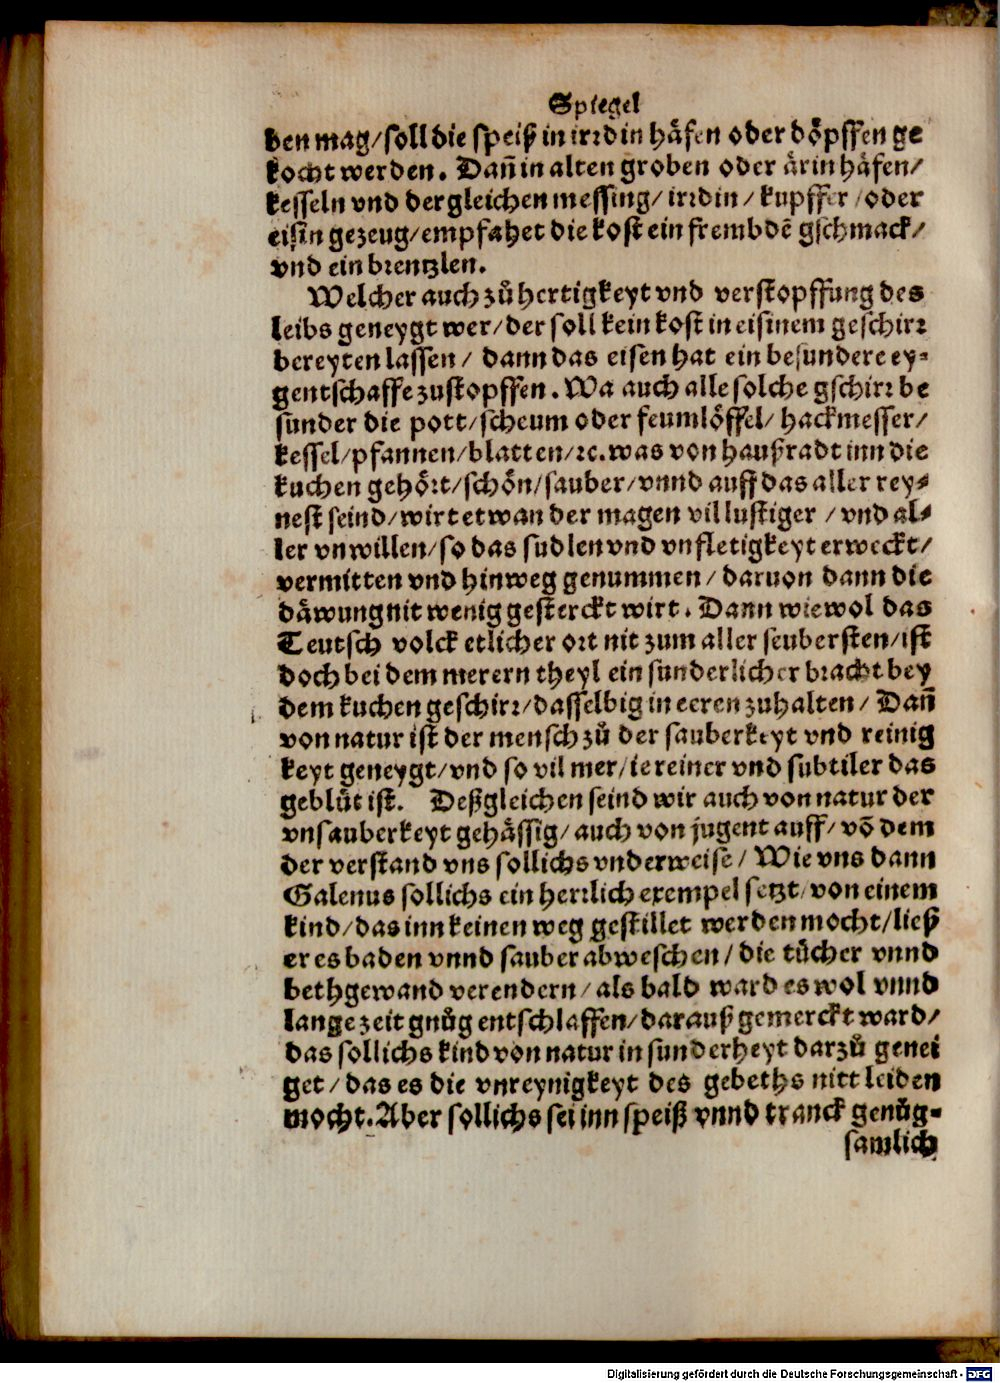 Spiegel
den mag/soll die speiß in irꝛdin häfen oder döpffen ge
kocht werden. Dañ in alten groben oder ärin häfen/
kesseln vnd dergleichen messing/ irꝛdin / kupffer /oder
eisin gezeug/empfahet die kost ein frembdē gschmack/
vnd ein bꝛentzlen.
Welcher auch zů hertigkeyt vnd verstopffung des
leibs geneygt wer/der soll kein kost in eisinem geschirꝛ
bereyten lassen/ dann das eisen hat ein besundere ey⸗
gentschaffe zustopffen. Wa auch alle solche gschirꝛ be
sunder die pott/scheum oder feumlöffel/ hackmesser/
kessel/pfannen/blatten/ꝛc. was von haußradt inn die
kuchen gehöꝛt/schön/sauber/vnnd auff das aller rey⸗
nest seind/wirt etwan der magen vil lustiger /vnd al⸗
ler vnwillen/so das sudlen vnd vnfletigkeyt erweckt/
vermitten vnd hinweg genummen/ daruon dann die
däwung nit wenig gesterckt wirt. Dann wiewol das
Teutsch volck etlicher oꝛt nit zum aller seubersten/ist
doch bei dem merern theyl ein sunderlicher bꝛacht bey
dem kuchen geschirꝛ/dasselbig in eeren zuhalten/ Dañ
von natur ist der mensch zů der sauberkeyt vnd reinig
keyt geneygt/vnd so vil mer/ie reiner vnd subtiler das
geblůt ist. Deßgleichen seind wir auch von natur der
vnsauberkeyt gehässig/ auch von jugent auff/ vō dem
der verstand vns sollichs vnderweise/ Wie vns dann
Galenus sollichs ein herꝛlich exempel setzt/von einem
kind/das inn keinen weg gestillet werden mocht/ließ
er es baden vnnd sauber abweschen/ die tücher vnnd
bethgewand verendern/ als bald ward es wol vnnd
lange zeit gnůg entschlaffen/darauß gemerckt ward/
das sollichs kind von natur in sunderheyt darzů genei
get/das es die vnreynigkeyt des gebeths nitt leiden
mocht. Aber sollichs sei inn speiß vnnd tranck genůg⸗
samlich
Digitalisierung gefördert durch die Deutsche Forschungsgemeinschaft - DFG